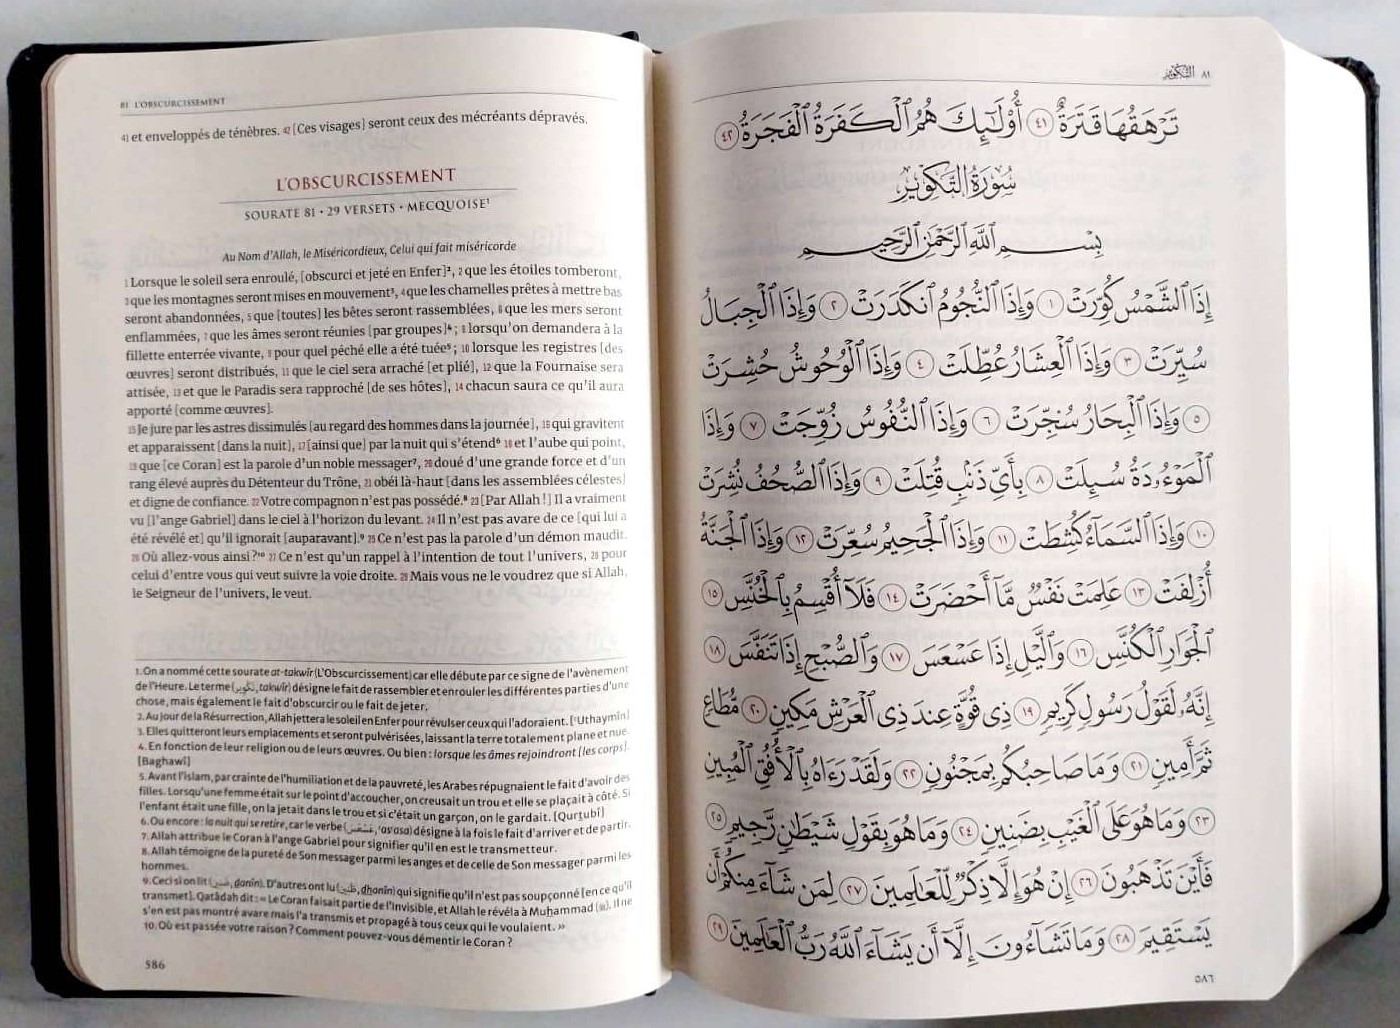 81 L'OBSCURCISSEMENT
41 et enveloppés de ténèbres. 42 [Ces visages] seront ceux des mécréants dépravés.
L'OBSCURCISSEMENT
SOURATE 81 • 29 VERSETS • MECQUOISE¹
Au Nom d'Allah, le Miséricordieux, Celui qui fait miséricorde
1 Lorsque le soleil sera enroulé, [obscurci et jeté en Enfer]², 2 que les étoiles tomberont,
3 que les montagnes seront mises en mouvement³, 4 que les chamelles prêtes à mettre bas
seront abandonnées, 5 que [toutes] les bêtes seront rassemblées, 6 que les mers seront
enflammées, 7 que les âmes seront réunies [par groupes]⁴ ; 8 lorsqu'on demandera à la
fillette enterrée vivante, 9 pour quel péché elle a été tuée⁵ ; 10 lorsque les registres [des
œuvres] seront distribués, 11 que le ciel sera arraché [et plié], 12 que la Fournaise sera
attisée, 13 et que le Paradis sera rapproché [de ses hôtes], 14 chacun saura ce qu'il aura
apporté [comme œuvres].
15 Je jure par les astres dissimulés [au regard des hommes dans la journée], 16 qui gravitent
et apparaissent [dans la nuit], 17 [ainsi que] par la nuit qui s'étend⁶ 18 et l'aube qui point,
19 que [ce Coran] est la parole d'un noble messager⁷, 20 doué d'une grande force et d'un
rang élevé auprès du Détenteur du Trône, 21 obéi là-haut [dans les assemblées célestes]
et digne de confiance. 22 Votre compagnon n'est pas possédé.⁸ 23 [Par Allah !] Il a vraiment
vu [l'ange Gabriel] dans le ciel à l'horizon du levant. 24 Il n'est pas avare de ce [qui lui a
été révélé et] qu'il ignorait [auparavant].⁹ 25 Ce n'est pas la parole d'un démon maudit.
26 Où allez-vous ainsi ?¹⁰ 27 Ce n'est qu'un rappel à l'intention de tout l'univers, 28 pour
celui d'entre vous qui veut suivre la voie droite. 29 Mais vous ne le voudrez que si Allah,
le Seigneur de l'univers, le veut.
1. On a nommé cette sourate at-takwîr (L'Obscurcissement) car elle débute par ce signe de l'avènement
de l'Heure. Le terme (تكوير, takwîr) désigne le fait de rassembler et enrouler les différentes parties d'une
chose, mais également le fait d'obscurcir ou le fait de jeter.
2. Au jour de la Résurrection, Allah jettera le soleil en Enfer pour révulser ceux qui l'adoraient. ['Uthaymîn]
3. Elles quitteront leurs emplacements et seront pulvérisées, laissant la terre totalement plane et nue.
4. En fonction de leur religion ou de leurs œuvres. Ou bien : lorsque les âmes rejoindront [les corps].
[Baghawî]
5. Avant l'islam, par crainte de l'humiliation et de la pauvreté, les Arabes répugnaient le fait d'avoir des
filles. Lorsqu'une femme était sur le point d'accoucher, on creusait un trou et elle se plaçait à côté. Si
l'enfant était une fille, on la jetait dans le trou et si c'était un garçon, on le gardait. [Qurṭubî]
6. Ou encore : la nuit qui se retire, car le verbe (عَسْعَسَ, 'as'asa) désigne à la fois le fait d'arriver et de partir.
7. Allah attribue le Coran à l'ange Gabriel pour signifier qu'il en est le transmetteur.
8. Allah témoigne de la pureté de Son messager parmi les anges et de celle de Son messager parmi les
hommes.
9. Ceci si on lit (ضنين, ḍanîn). D'autres ont lu (ظنين, ḍhanîn) qui signifie qu'il n'est pas soupçonné [en ce qu'il
transmet]. Qatâdah dit : « Le Coran faisait partie de l'Invisible, et Allah le révéla à Muḥammad (ﷺ). Il ne
s'en est pas montré avare mais l'a transmis et propagé à tous ceux qui le voulaient. »
10. Où est passée votre raison ? Comment pouvez-vous démentir le Coran ?
586
٨١ التَّكْوِير
تَرْهَقُهَا قَتَرَةٌ ٤١ أُوْلَٰٓئِكَ هُمُ ٱلْكَفَرَةُ ٱلْفَجَرَةُ ٤٢
سُورَةُ التَّكْوِيرِ
بِسْمِ ٱللَّهِ ٱلرَّحْمَٰنِ ٱلرَّحِيمِ
إِذَا ٱلشَّمْسُ كُوِّرَتْ ١ وَإِذَا ٱلنُّجُومُ ٱنكَدَرَتْ ٢ وَإِذَا ٱلْجِبَالُ
سُيِّرَتْ ٣ وَإِذَا ٱلْعِشَارُ عُطِّلَتْ ٤ وَإِذَا ٱلْوُحُوشُ حُشِرَتْ
٥ وَإِذَا ٱلْبِحَارُ سُجِّرَتْ ٦ وَإِذَا ٱلنُّفُوسُ زُوِّجَتْ ٧ وَإِذَا
ٱلْمَوْءُۥدَةُ سُئِلَتْ ٨ بِأَيِّ ذَنۢبٍ قُتِلَتْ ٩ وَإِذَا ٱلصُّحُفُ نُشِرَتْ
١٠ وَإِذَا ٱلسَّمَآءُ كُشِطَتْ ١١ وَإِذَا ٱلْجَحِيمُ سُعِّرَتْ ١٢ وَإِذَا ٱلْجَنَّةُ
أُزْلِفَتْ ١٣ عَلِمَتْ نَفْسٌ مَّآ أَحْضَرَتْ ١٤ فَلَآ أُقْسِمُ بِٱلْخُنَّسِ ١٥
ٱلْجَوَارِ ٱلْكُنَّسِ ١٦ وَٱلَّيْلِ إِذَا عَسْعَسَ ١٧ وَٱلصُّبْحِ إِذَا تَنَفَّسَ ١٨
إِنَّهُۥ لَقَوْلُ رَسُولٍ كَرِيمٍ ١٩ ذِى قُوَّةٍ عِندَ ذِى ٱلْعَرْشِ مَكِينٍ ٢٠ مُّطَاعٍ
ثَمَّ أَمِينٍ ٢١ وَمَا صَاحِبُكُم بِمَجْنُونٍ ٢٢ وَلَقَدْ رَءَاهُ بِٱلْأُفُقِ ٱلْمُبِينِ
٢٣ وَمَا هُوَ عَلَى ٱلْغَيْبِ بِضَنِينٍ ٢٤ وَمَا هُوَ بِقَوْلِ شَيْطَٰنٍ رَّجِيمٍ ٢٥
فَأَيْنَ تَذْهَبُونَ ٢٦ إِنْ هُوَ إِلَّا ذِكْرٌ لِّلْعَٰلَمِينَ ٢٧ لِمَن شَآءَ مِنكُمْ أَن
يَسْتَقِيمَ ٢٨ وَمَا تَشَآءُونَ إِلَّآ أَن يَشَآءَ ٱللَّهُ رَبُّ ٱلْعَٰلَمِينَ ٢٩
٥٨٦